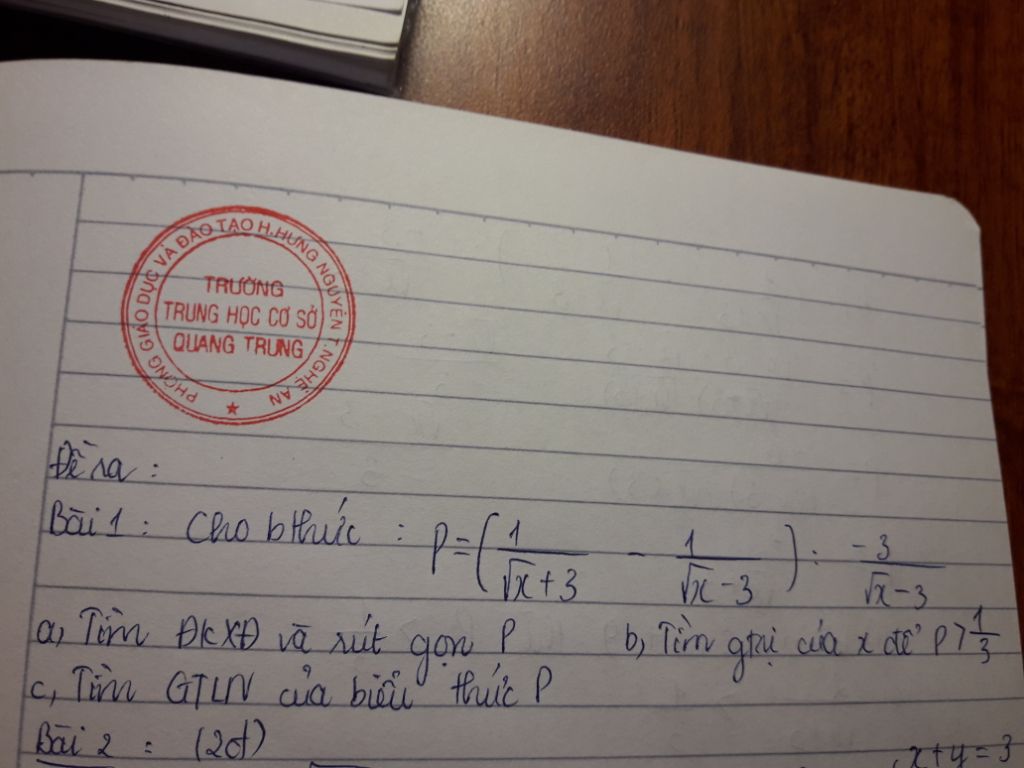 PHÒNG GIÁO DỤC VÀ ĐÀO TẠO H.HƯNG NGUYÊN T.NGHỆ AN
TRƯỜNG
TRUNG HỌC CƠ SỞ
QUANG TRUNG
Đề ra :
Bài 1 : Cho bthức : P = ( 1/(√x + 3) - 1/(√x - 3) ) : -3/(√x - 3)
a, Tìm ĐKXĐ và rút gọn P b, Tìm gtrị của x để P > 1/3
c, Tìm GTLN của biểu thức P
Bài 2 : (2đ)
x + y = 3